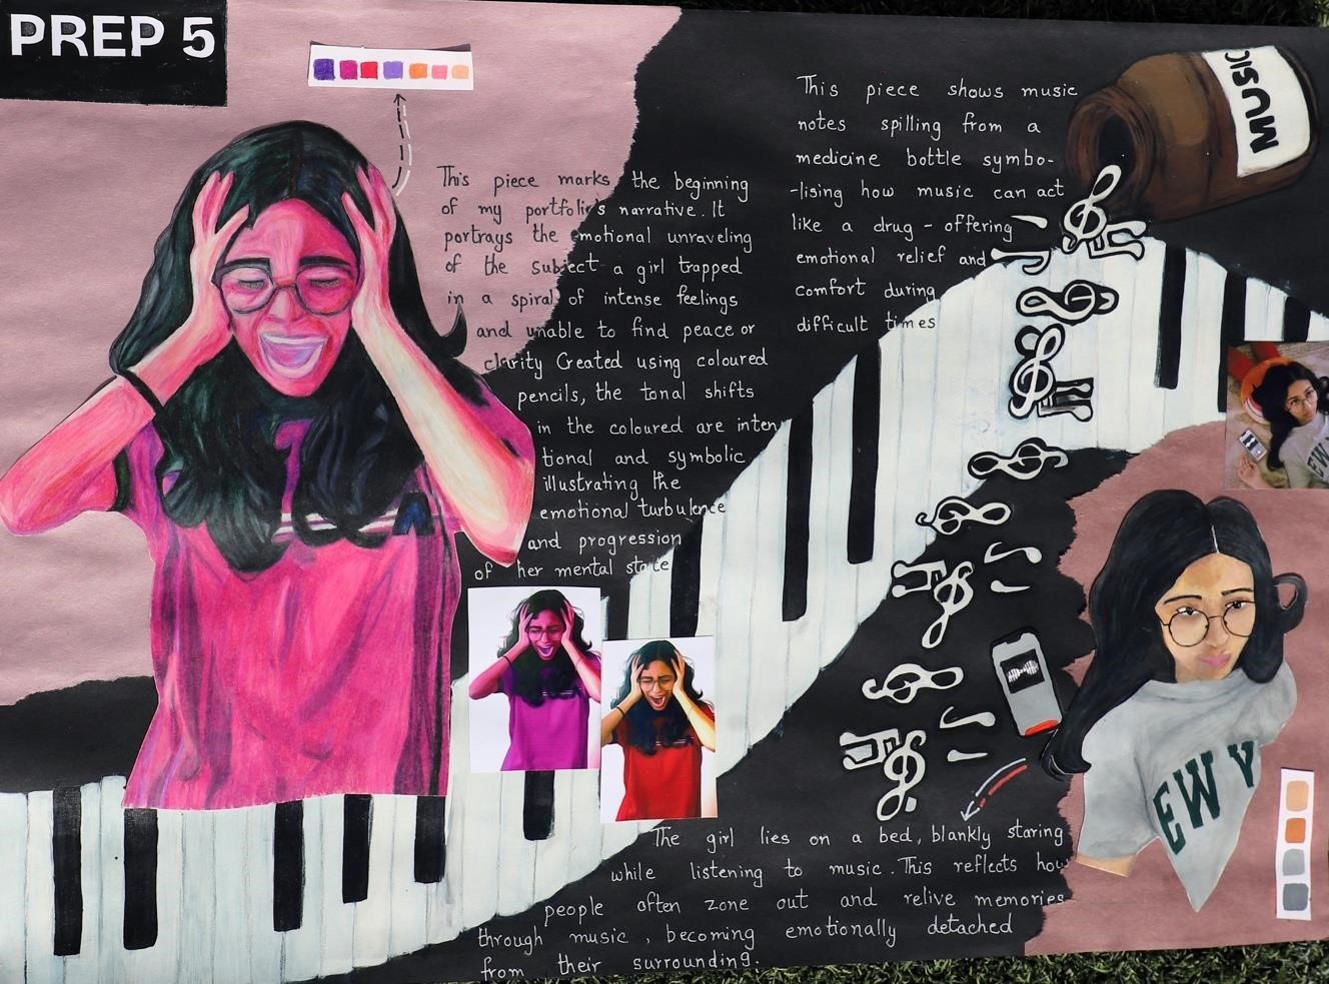 PREP 5
This piece marks the beginning
of my portfolio's narrative. It
portrays the emotional unraveling
of the subject a girl trapped
in a spiral of intense feelings
and unable to find peace or
clarity Created using coloured
pencils, the tonal shifts
in the coloured are inten
tional and symbolic
illustrating the
emotional turbulence
and progression
of her mental state
This piece shows music
notes spilling from a
medicine bottle symbo-
-lising how music can act
like a drug - offering
emotional relief and
comfort during
difficult times
MUSIC
EW Y
The girl lies on a bed, blankly staring
while listening to music. This reflects how
people often zone out and relive memories
through music, becoming emotionally detached
from their surrounding.